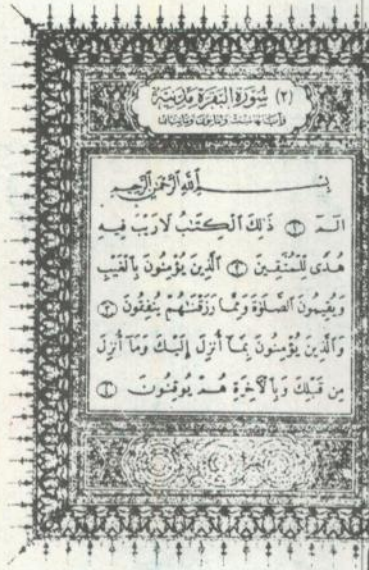 (٢) سُورَةُ البَقَرَةِ مَدَنِيَّة
وَآيَاتُهَا سِتٌّ وَثَمَانُونَ وَمِائَتَانِ
بِسْمِ ٱللَّهِ ٱلرَّحْمَٰنِ ٱلرَّحِيمِ
الٓمٓ ١ ذَٰلِكَ ٱلْكِتَٰبُ لَا رَيْبَ فِيهِ
هُدًى لِّلْمُتَّقِينَ ٢ ٱلَّذِينَ يُؤْمِنُونَ بِٱلْغَيْبِ
وَيُقِيمُونَ ٱلصَّلَوٰةَ وَمِمَّا رَزَقْنَٰهُمْ يُنفِقُونَ ٣
وَٱلَّذِينَ يُؤْمِنُونَ بِمَآ أُنزِلَ إِلَيْكَ وَمَآ أُنزِلَ
مِن قَبْلِكَ وَبِٱلْءَاخِرَةِ هُمْ يُوقِنُونَ ٤